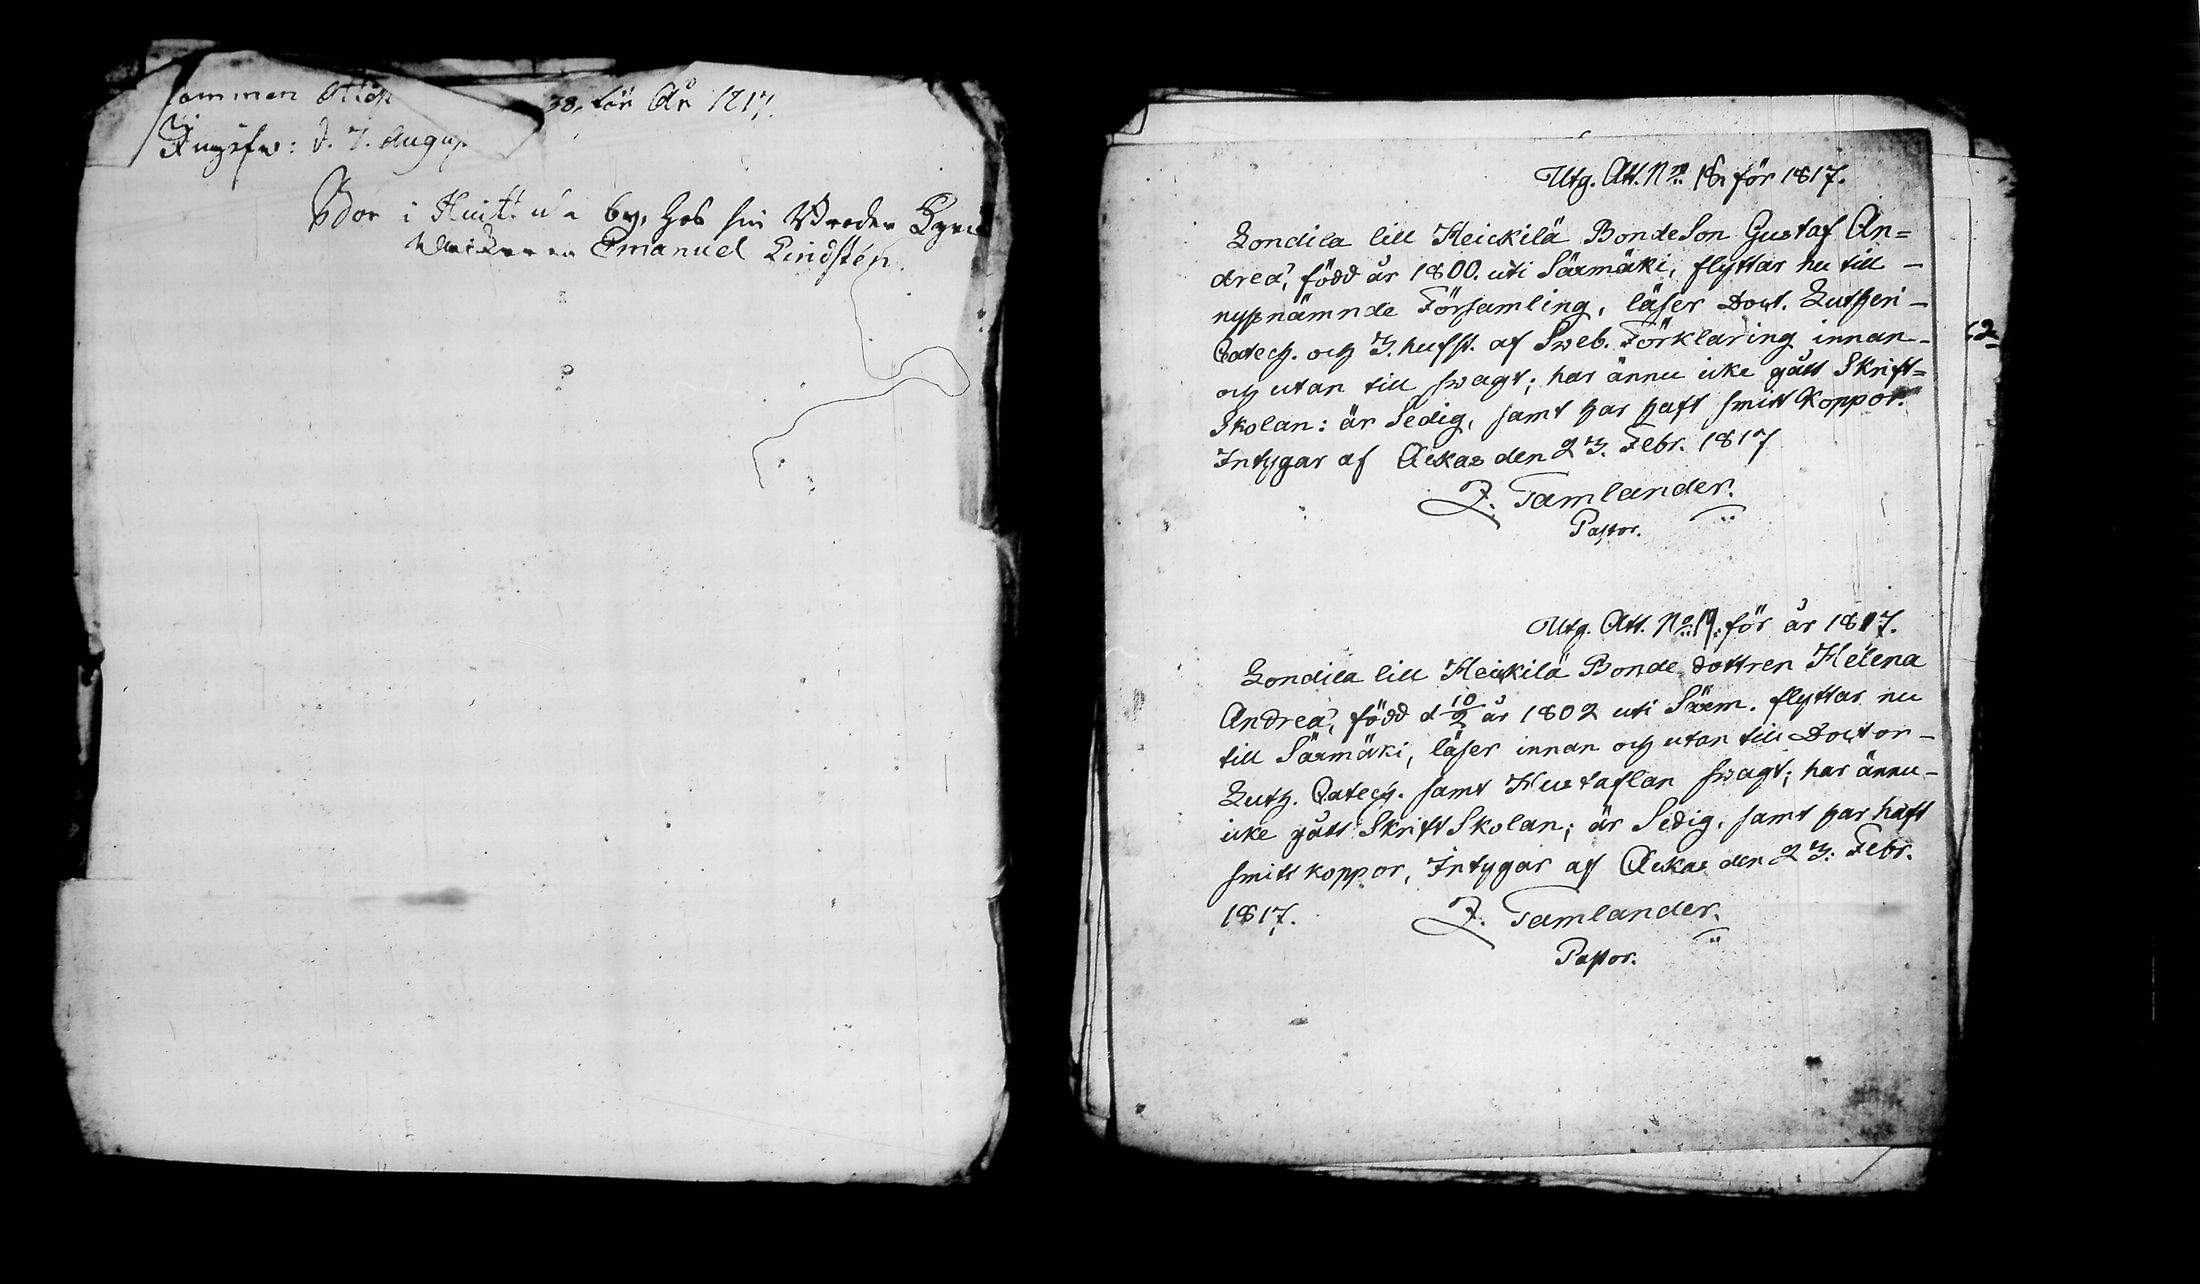 ommen Attest 38, för År 1817.
Jngrfw: d. 7. Augus
Bor i by, hos sin Broder Kyrio
Wäcktaren Emanuel Lindstén.
Utg. Att. No. 18, för 1817.
Londila lill Heickilä BondeSon Gustaf An=
drea, född år 1800. uti Säxmäki, flyttar nu till –
nyßnämnde Församling, läser Doct. Lutheri –
Catech. och 3. hufst. af Sweb. Förklaring innan –
och utan till swagt; har ännu icke gått Skrift=
Skolan: är Sedig, samt har haft smitt Koppor.
Intygar af Ackas den 23. Febr. 1817
Z. Tamlander.
Pastor.
Utg. Att. No. 19. för år 1817.
Londila lill Heickilä Bonde dottren Helena
Andrea, född d 10/2 år 1802 uti Säxm. flyttar nu
till Säxmäki, läser innan och utan till Doctor –
Luth. Catech. samt Hustaflan swagt; har ännu –
icke gått SkriftSkolan; är Sedig, samt har haft
smitt koppor, Intygar af Ackas den 23. Febr.
1817. Z. Tamlander.
Pastor.